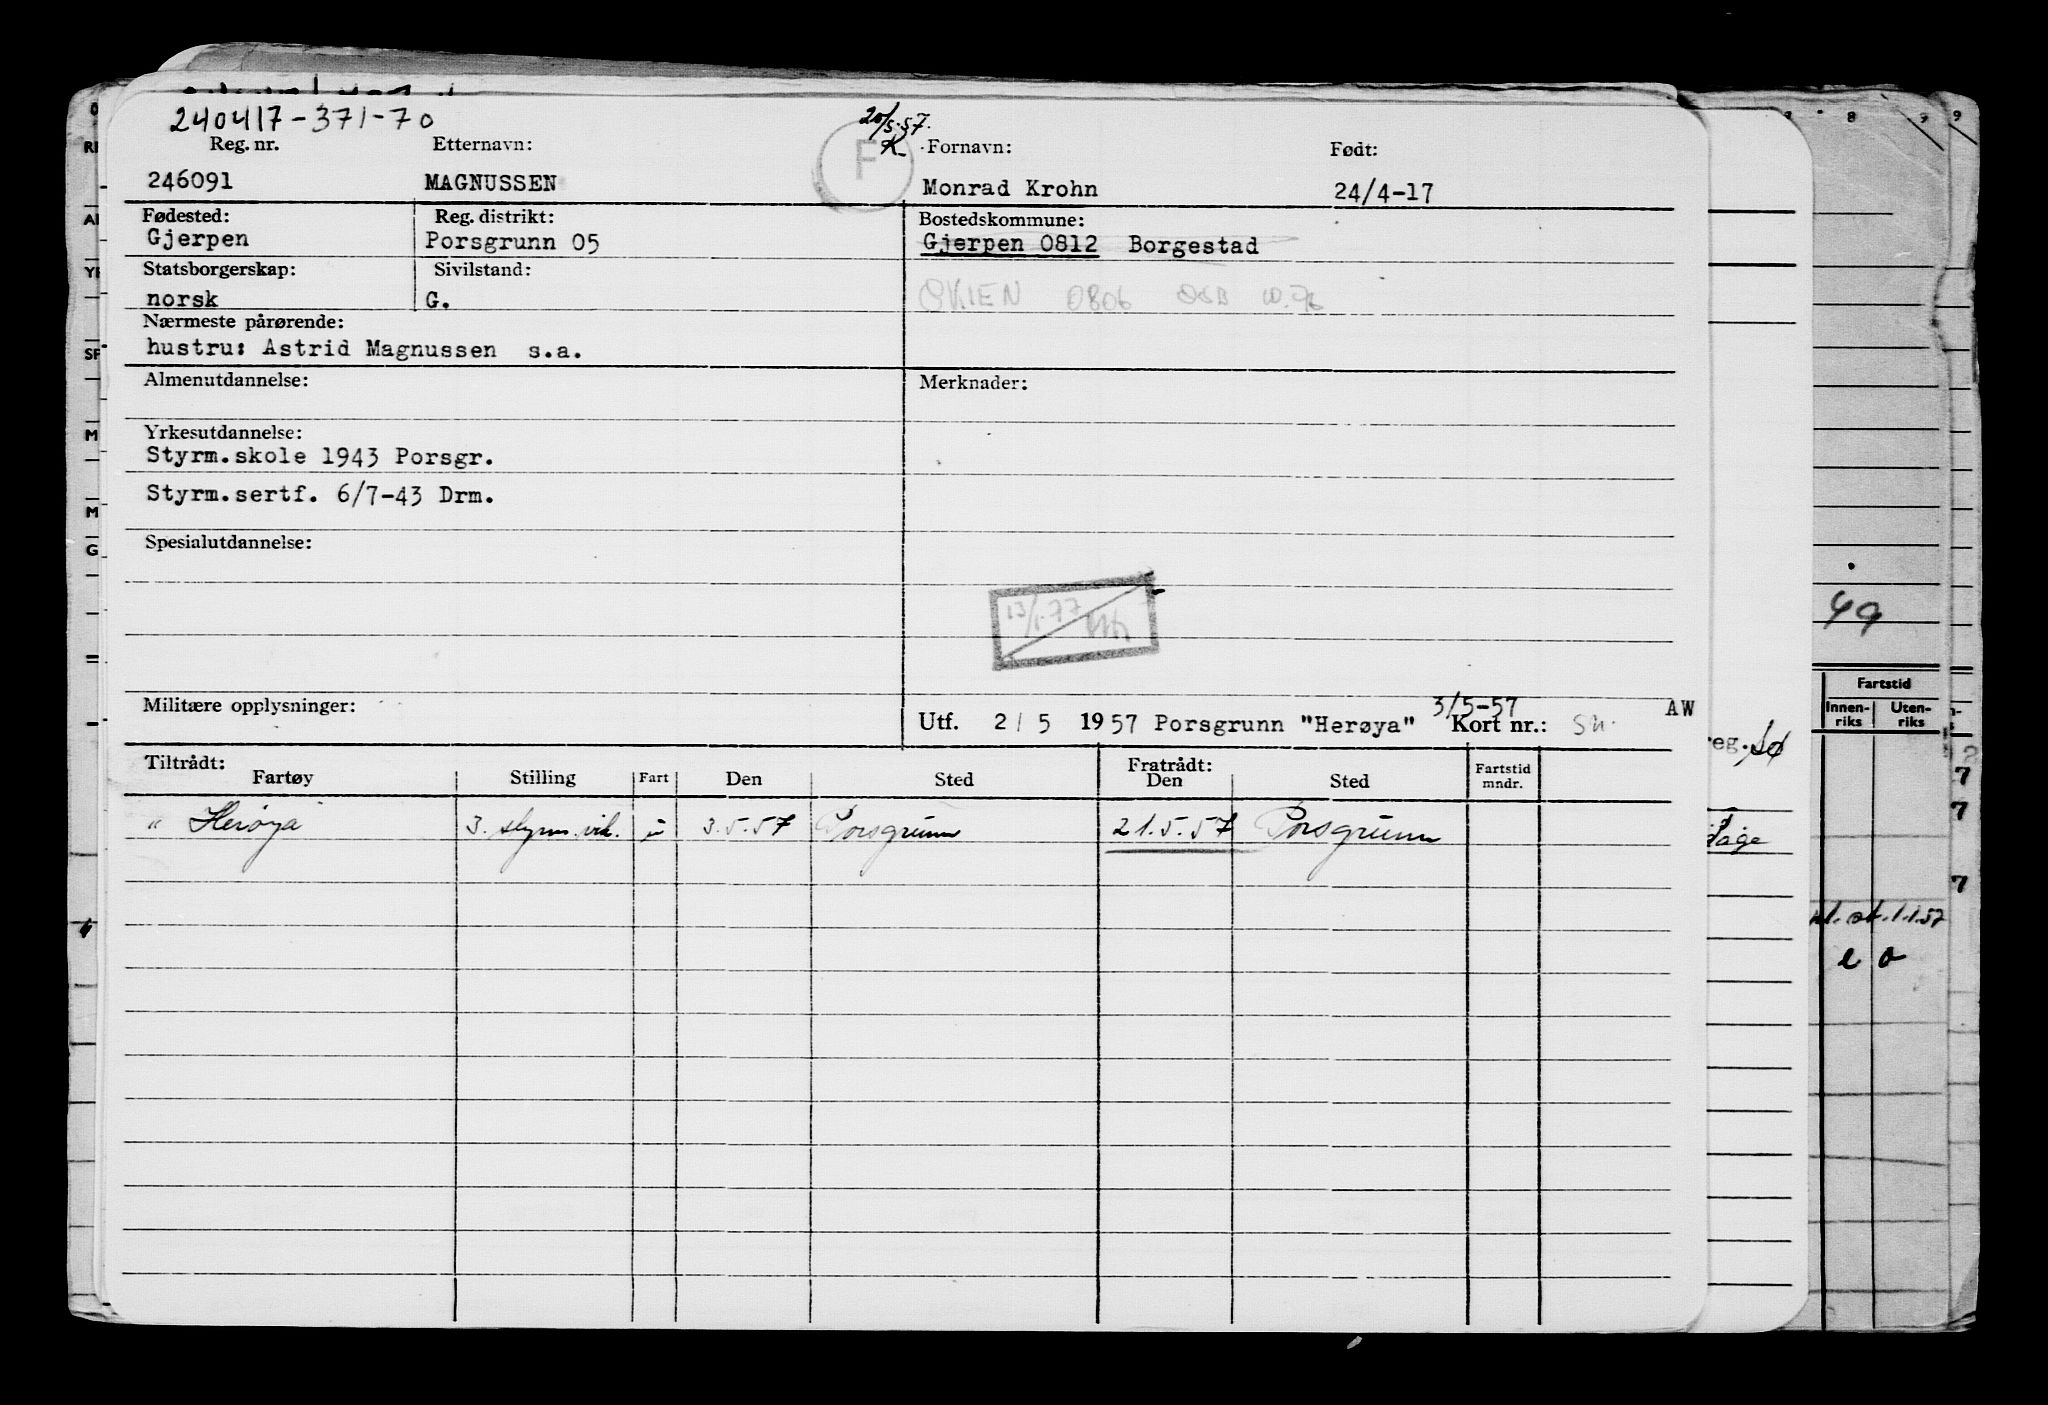 240417-371-70
20/5.57.
K
F
Reg. nr. Etternavn: Fornavn: Født:
246091 MAGNUSSEN Monrad Krohn 24/4-17
Fødested: Reg. distrikt: Bostedskommune:
Gjerpen Porsgrunn 05 Gjerpen 0812 Borgestad
Statsborgerskap: Sivilstand:
norsk G. SKIEN 0806
Nærmeste pårørende:
hustru: Astrid Magnussen s.a.
Almenutdannelse: Merknader:
Yrkesutdannelse:
Styrm.skole 1943 Porsgr.
Styrm.sertf. 6/7-43 Drm.
Spesialutdannelse:
13/1-77
Militære opplysninger:
3/5-57 AW
Utf. 2/5 1957 Porsgrunn "Herøya" Kort nr.:
Tiltrådt: Fratrådt:
Fartøy Stilling Fart Den Sted Den Sted Fartstid mndr.
" Herøya 3. styrm. vik. u 3.5.57 Porsgrunn 21.5.57 Porsgrunn
8 9 9
49
Fartstid
Innen-riks Uten-riks
eg. Sø
1.1.57
e o
7
7
7